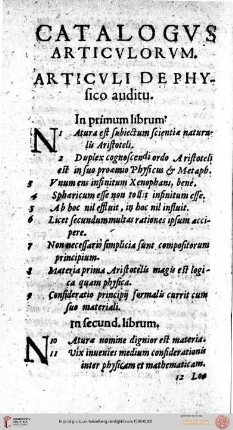 CATALOGVS
ARTICVLORVM.
ARTICVLI DE PHY-
sico auditu.
In primum librum.
1 NAtura est subiectum scientiæ natura-
lis Aristoteli.
2 Duplex cognoscendi ordo Aristoteli
est in suo proœmio Physicæ & Metaph.
3 Vnum ens infinitum Xenophani, bené.
4 Sphæricum esse non tollit infinitum esse.
5 Ab hoc nil effluit, in hoc nil influit.
6 Licet secundum multas rationes ipsum acci-
pere.
7 Non necessariò simplicia sunt compositorum
principium.
8 Materia prima Aristotelis magis est logi-
ca quam physica.
9 Consideratio principij formalis currit cum
suo materiali.
In secund. librum.
10 NAtura nomine dignior est materia.
11 Vix inuenies medium considerationis
inter physicam et mathematicam.
12 Loo